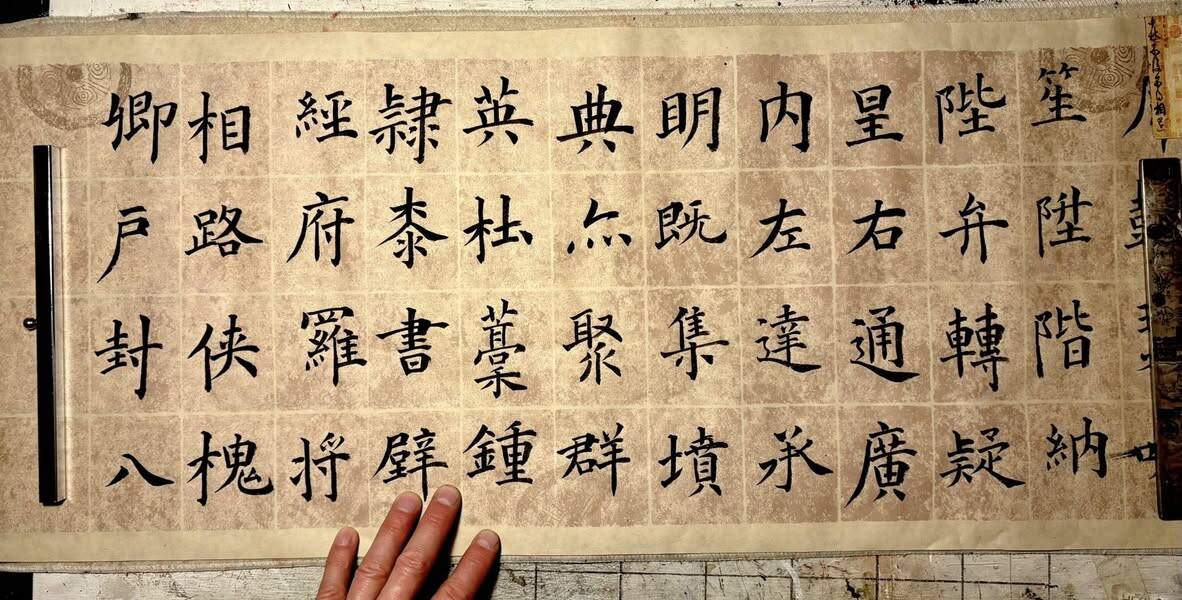 笙陞階納
陛弁轉疑
星右通廣
内左達承
明既集墳
典亦聚群
英杜藁鍾
隸桼書壁
經府羅将
相路侠槐
卿戸封八